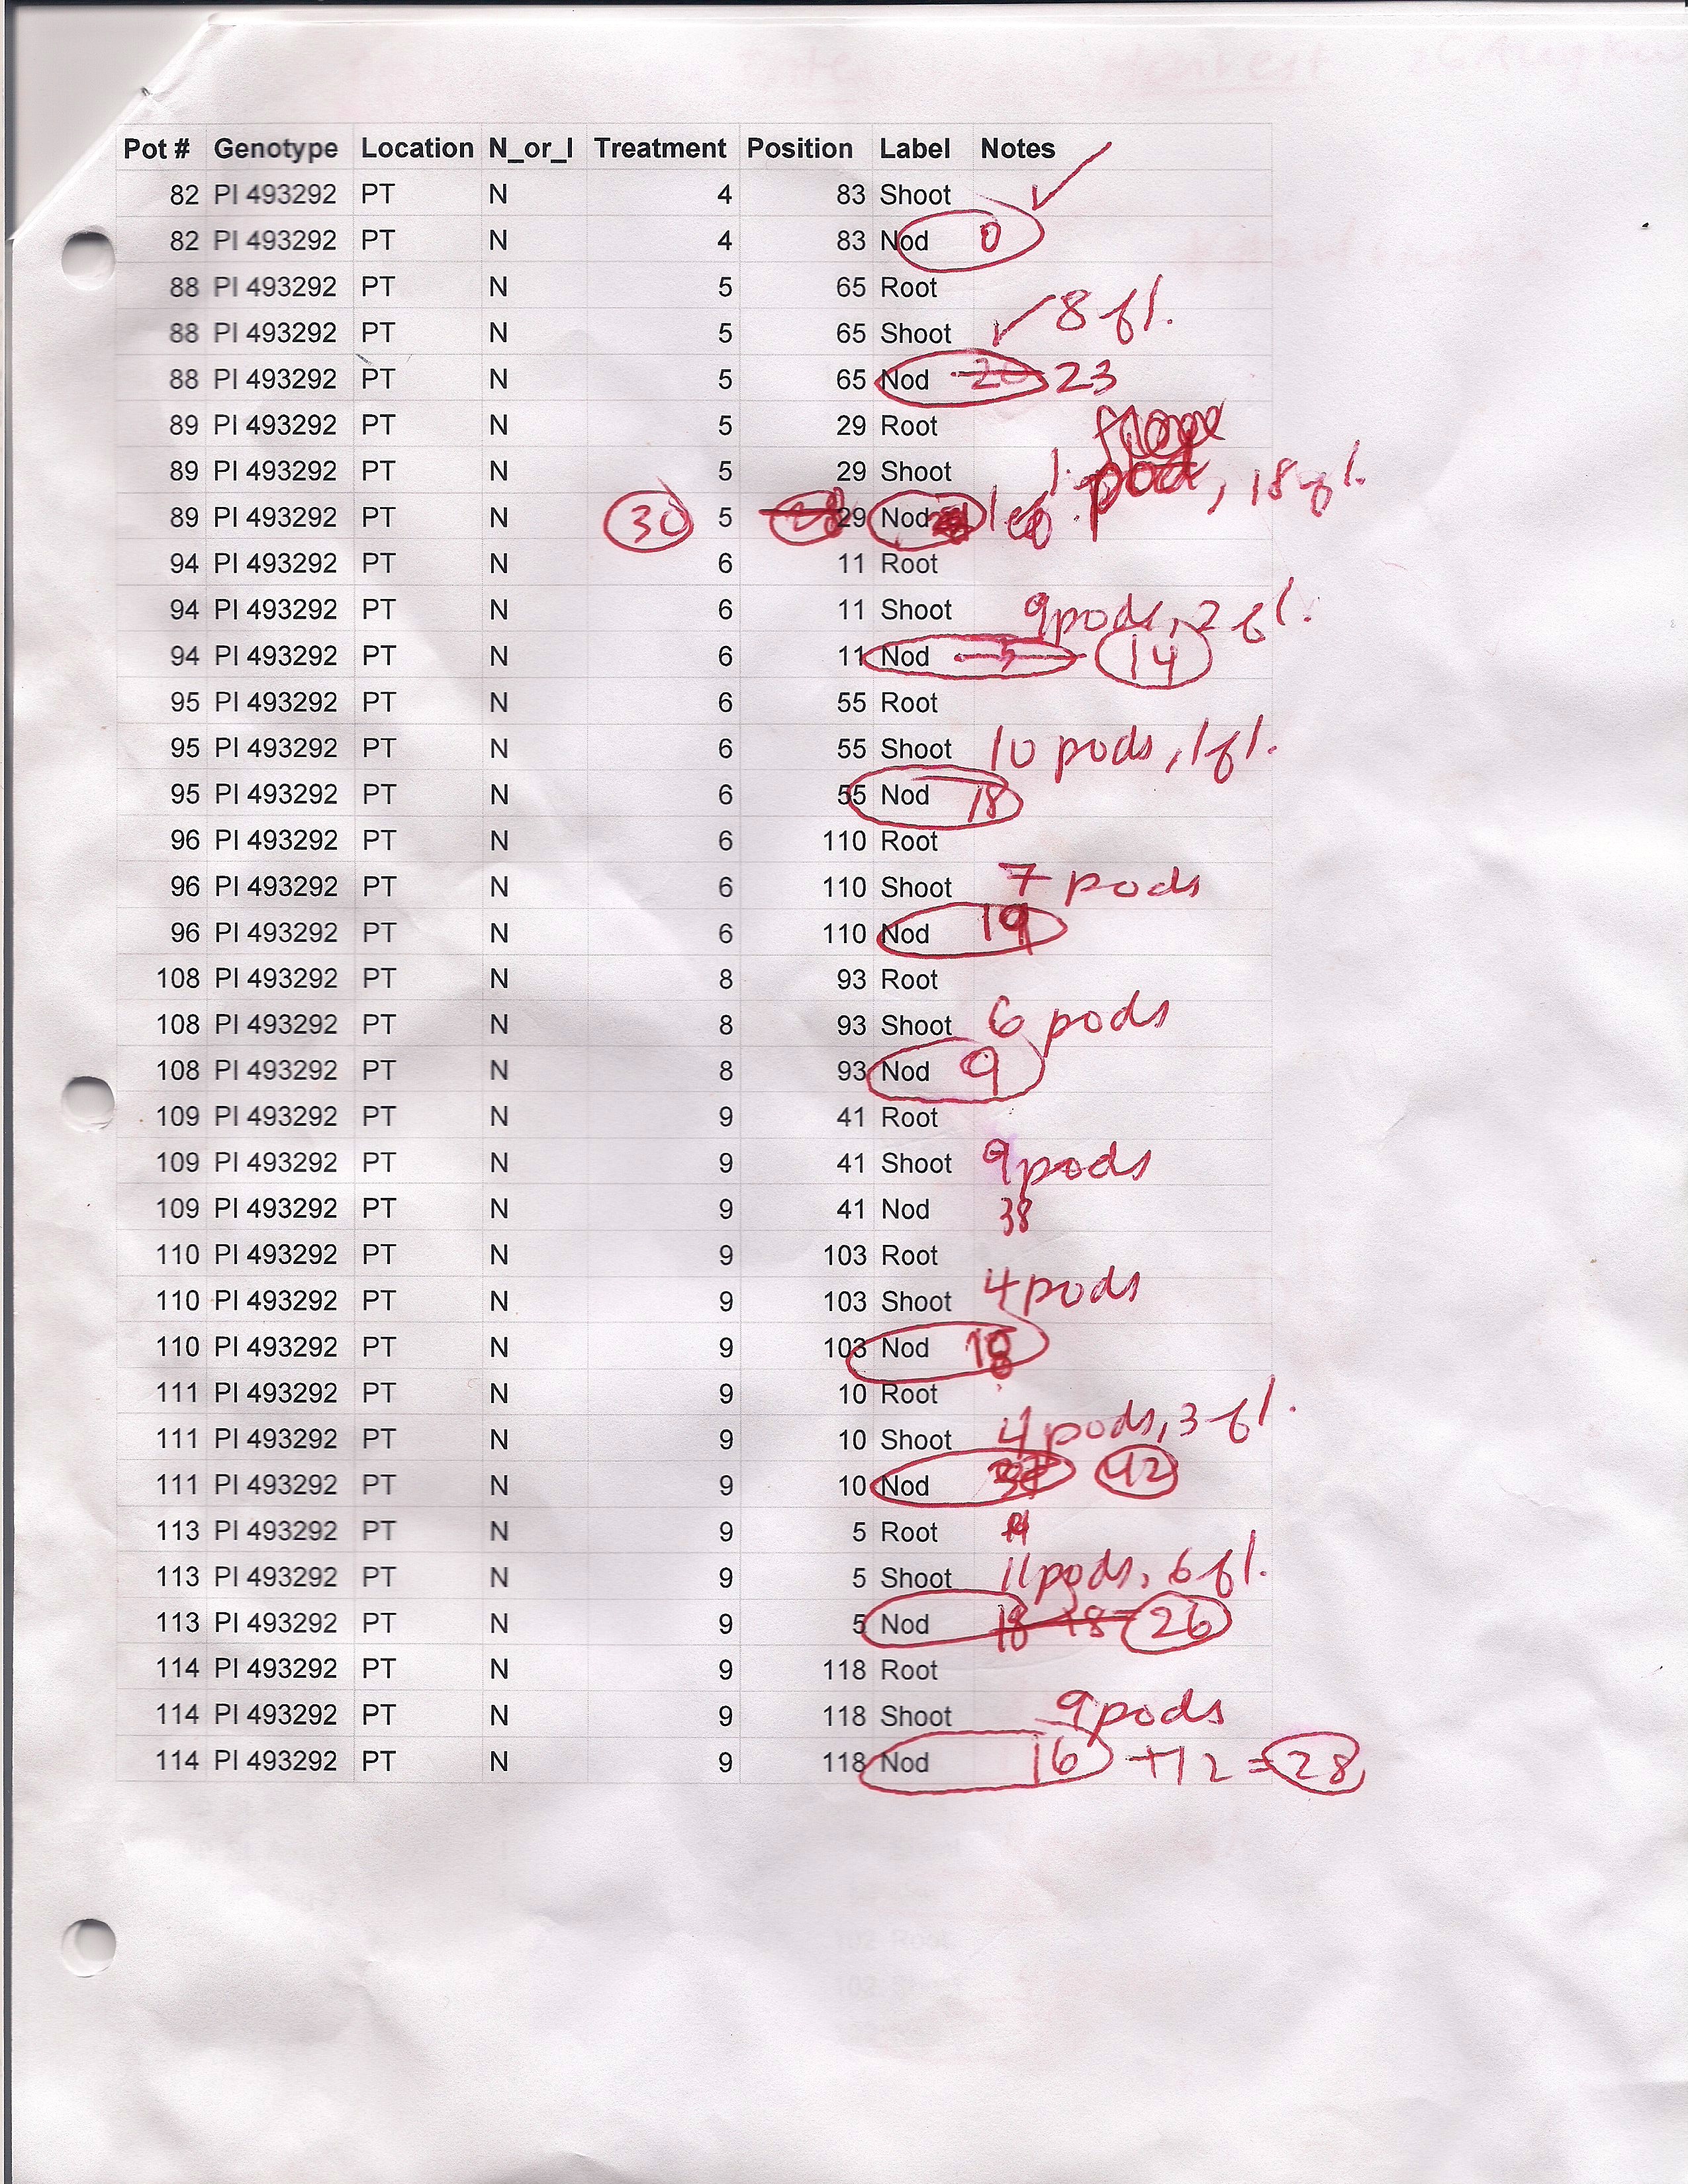 Pot # Genotype Location N_or_I Treatment Position Label Notes
82 PI 493292 PT N 4 83 Shoot
82 PI 493292 PT N 4 83 Nod 0
88 PI 493292 PT N 5 65 Root
88 PI 493292 PT N 5 65 Shoot 8 fl.
88 PI 493292 PT N 5 65 Nod 20 23
89 PI 493292 PT N 5 29 Root
89 PI 493292 PT N 5 29 Shoot 1 pod, 18 fl.
89 PI 493292 PT N 30 5 29 Nod
94 PI 493292 PT N 6 11 Root
94 PI 493292 PT N 6 11 Shoot 9 pods, 2 fl.
94 PI 493292 PT N 6 11 Nod 14
95 PI 493292 PT N 6 55 Root
95 PI 493292 PT N 6 55 Shoot 10 pods, 1 fl.
95 PI 493292 PT N 6 55 Nod 18
96 PI 493292 PT N 6 110 Root
96 PI 493292 PT N 6 110 Shoot 7 pods
96 PI 493292 PT N 6 110 Nod 19
108 PI 493292 PT N 8 93 Root
108 PI 493292 PT N 8 93 Shoot 6 pods
108 PI 493292 PT N 8 93 Nod 9
109 PI 493292 PT N 9 41 Root
109 PI 493292 PT N 9 41 Shoot 9 pods
109 PI 493292 PT N 9 41 Nod 38
110 PI 493292 PT N 9 103 Root
110 PI 493292 PT N 9 103 Shoot 4 pods
110 PI 493292 PT N 9 103 Nod 18
111 PI 493292 PT N 9 10 Root
111 PI 493292 PT N 9 10 Shoot 4 pods, 3 fl.
111 PI 493292 PT N 9 10 Nod 42
113 PI 493292 PT N 9 5 Root
113 PI 493292 PT N 9 5 Shoot 11 pods, 6 fl.
113 PI 493292 PT N 9 5 Nod 18 18 26
114 PI 493292 PT N 9 118 Root
114 PI 493292 PT N 9 118 Shoot 9 pods
114 PI 493292 PT N 9 118 Nod 16 +12 = 28